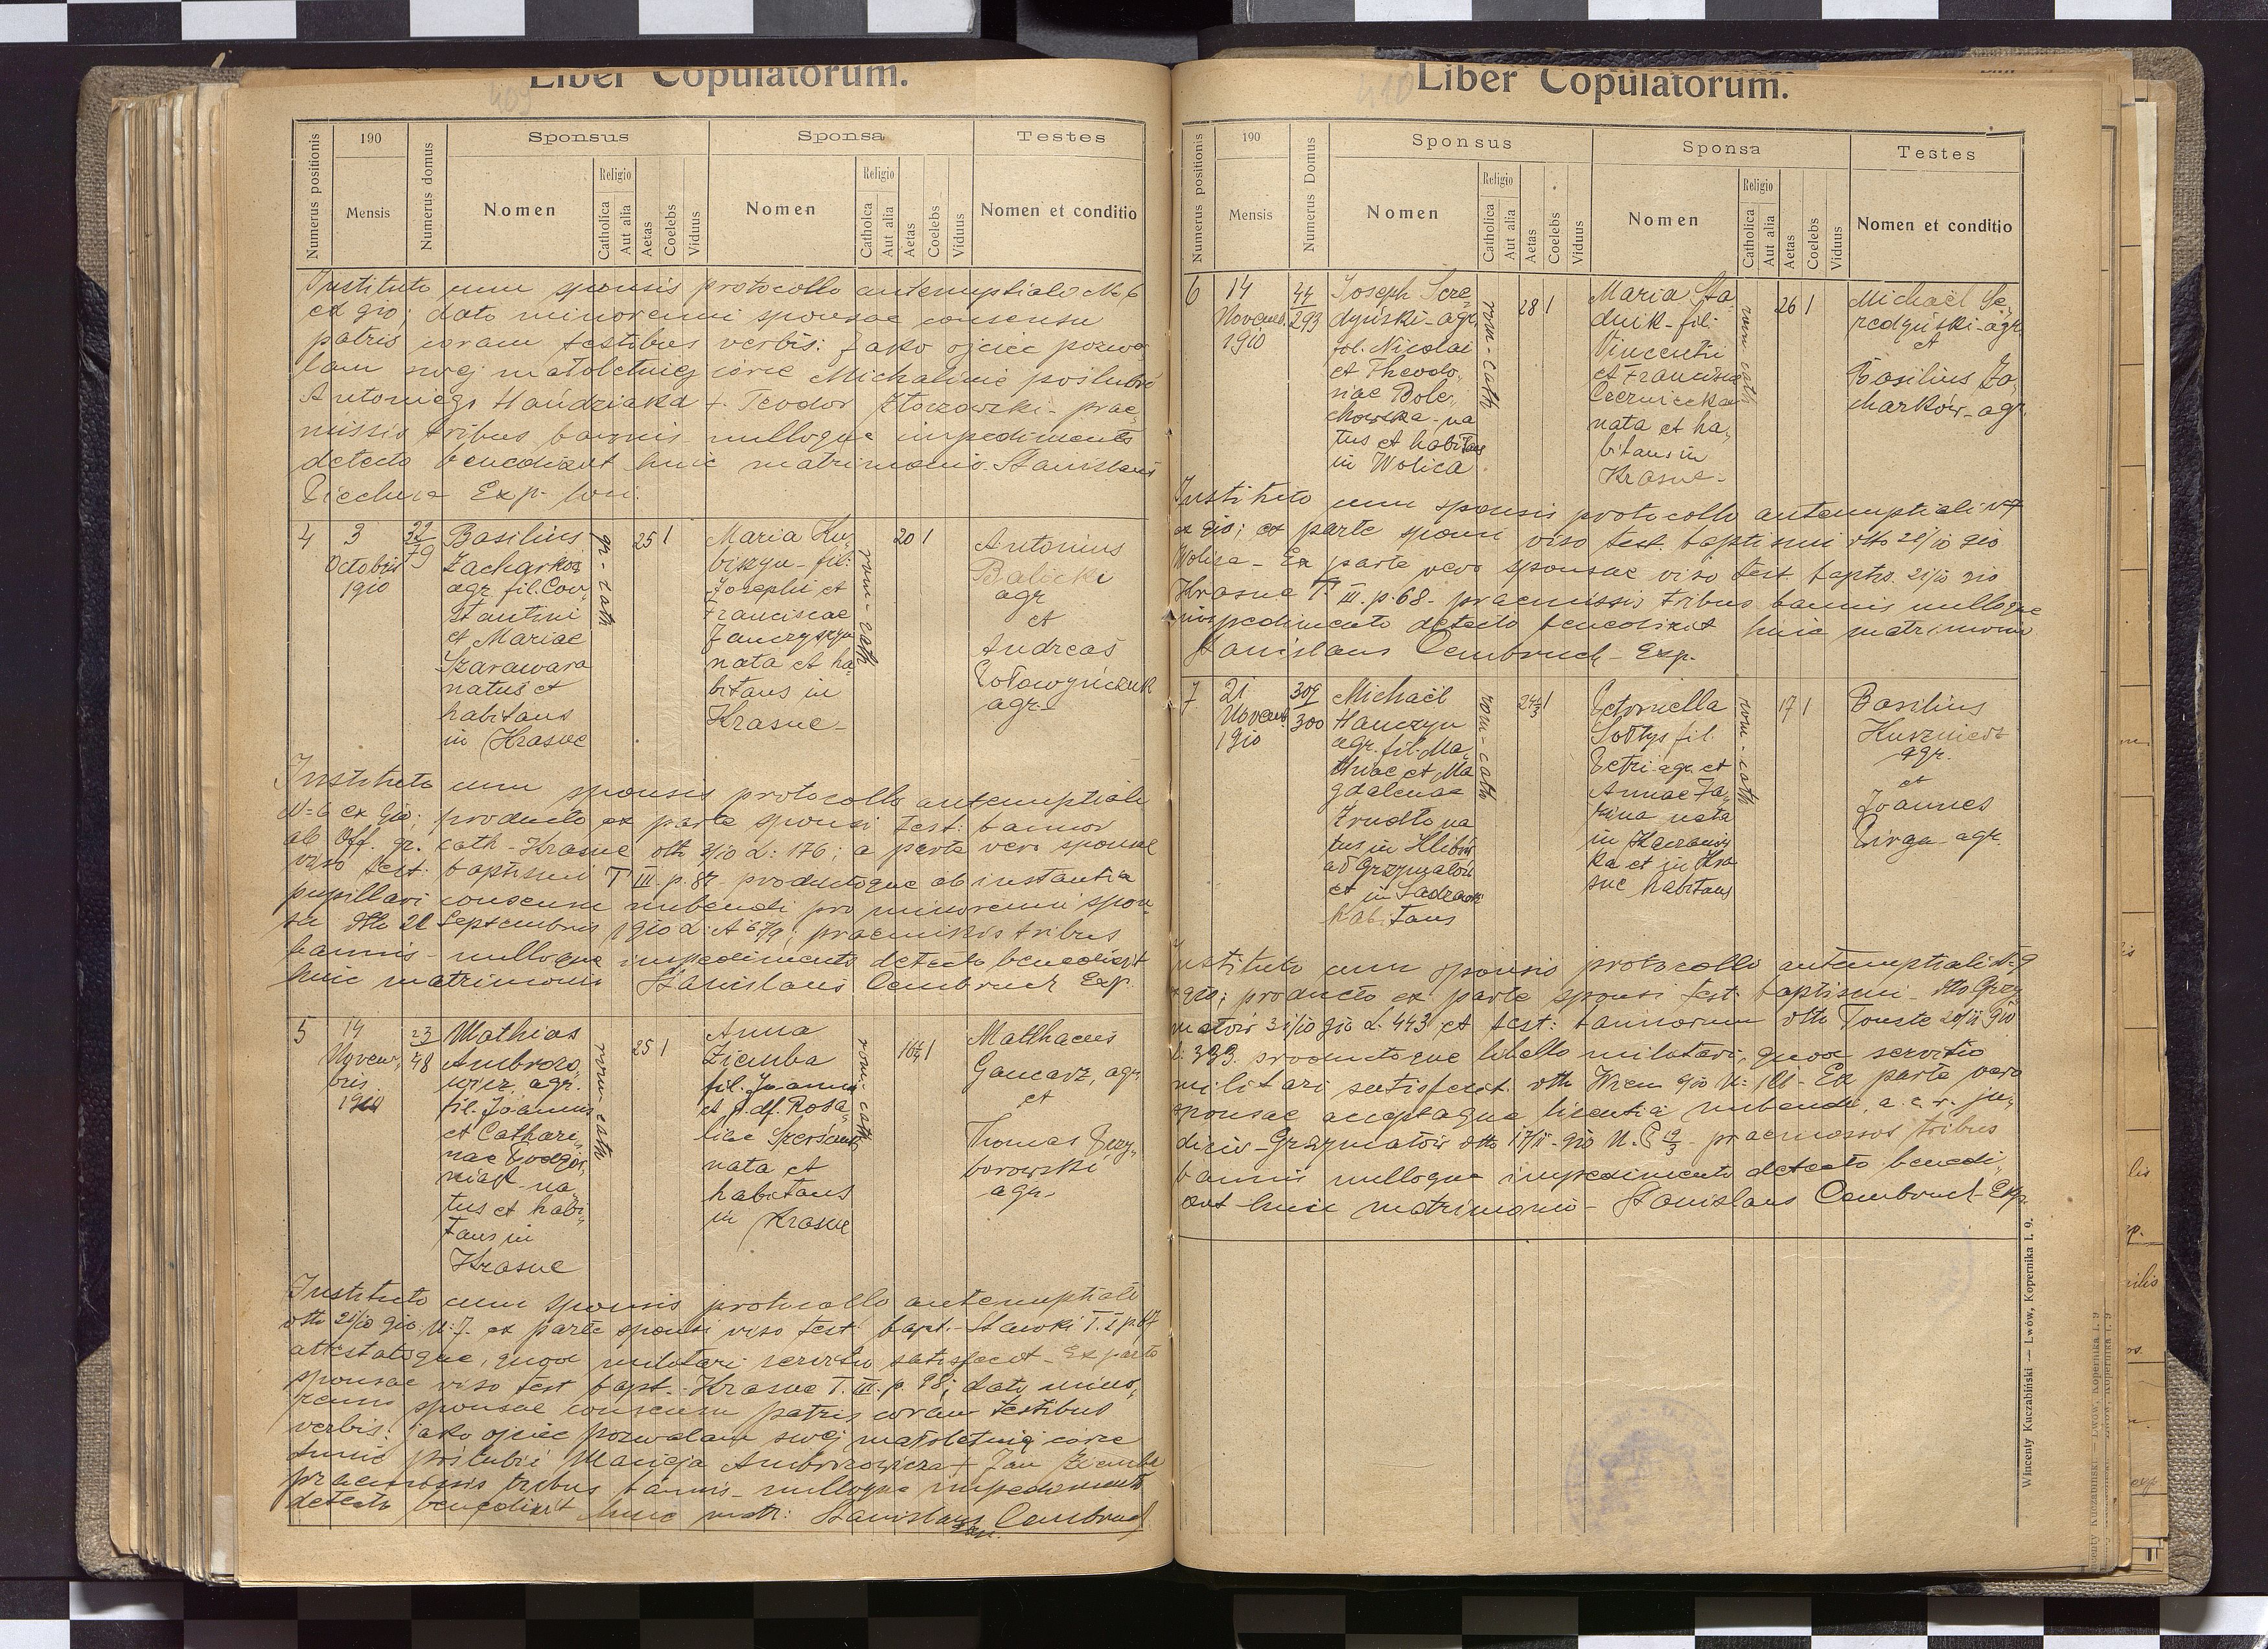 409
Liber Copulatorum.
Numerus positionis
190
Mensis
Numerus domus
Sponsus
Nomen
Religio
Catholica
Aut alia
Aetas
Coelebs
Viduus
Sponsa
Nomen
Religio
Catholica
Aut alia
Aetas
Coelebs
Viduus
Testes
Nomen et conditio
Instituto cum sponsis protocollo antenuptiali No 6
ex 910; dato minorenni sponsae consensu
patris coram testibus verbis: Jako ojciec pozwa-
lam swej małoletniej córce Michalinie poślubić
Antoniego Hańdziaka + Teodor Złoczowski - prae-
missis tribus bannis nulloque impedimento
detecto benedixit huic matrimonio. Stanislaus
Piechura Exp. loci.
4
3
Octobris
1910
22
79
Basilius
Zacharków
agr. fil. Con-
stantini
et Mariae
Szarawara
natus et
habitans
in Krasne
gr-cath
25
1
Maria Ku-
biszyn - fil:
Josephi et
Franciscae
Janczyszyn
nata et ha-
bitans in
Krasne -
rom-cath
20
1
Antonius
Balicki
agr
et
Andreas
agr-
Instituto cum sponsis protocollo antenuptiali
N=6 ex 910; producto ex parte sponsi test: bannor
ab Off. gr. cath - Krasne dtto 2/10 L: 176; a parte vero sponsae
viso test: baptismi T III p. 87 - productoque ab instantia
pupillari consensu nubendi pro minorenni spon-
sa dtto 22 Septembris 1910 praemissis tribus
bannis - nulloque impedimento detecto benedixit
huic matrimonio Stanislaus Cembruch Exp.
5
14
Novem-
bris
1910
23
48
Mathias
Ambrozo-
wicz agr.
fil. Joannis
et Cathari-
nae Podgór-
niak na-
tus et habi-
tans in
Krasne
rom-cath
25
1
Anna
Ziemba
fil. Joannis
et p. df. Rosa-
liae
nata et
habitans
in Krasne
rom-cath
1
Matthaeus
Gancarz, agr
et
Thomas Przy-
borowski
agr-
Instituto cum sponsis protocollo antenuptiali
dtto 21/10 910 N: 7. ex parte sponsi viso test bapt. - Stawki T. I p. 47
attestatoque, quod militari servitio satisfecit - Ex parte
sponsae viso test bapt. - Krasne T. III. p. 98; dato mino-
rennis sponsae consensu patris coram testibus
verbis: jako ojciec pozwalam swej małoletniej córce
Annie poślubić Macieja Ambrozowicza + Jan Ziemba
praemissis tribus bannis - nulloque impedimento
detecto benedixit huic matr: Stanislaus Cembruch
Exp.
410
Liber Copulatorum.
Numerus positionis
190
Mensis
Numerus Domus
Sponsus
Nomen
Religio
Catholica
Aut alia
Aetas
Coelebs
Viduus
Sponsa
Nomen
Religio
Catholica
Aut alia
Aetas
Coelebs
Viduus
Testes
Nomen et conditio
6
14
Novemb.
1910
44
293
Joseph Sere-
dyński - agr.
fil. Nicolai
et Theodo-
siae Bole-
chowska - na
tus et habitans
in Wolica
rom-cath
28
1
Maria Sta-
dnik - fil:
Vincentii
et Franciscae
Czerniecka
nata et ha-
bitans in
Krasne -
rom-cath
26
1
Michaël Se-
redyński - agr
et
Basilius Za-
charków - agr.
Instituto cum sponsis protocollo antenuptiali N 7
ex 910; ex parte sponsi viso test. baptismi dtto 21/10 910
Wolica - Ex parte vero sponsae viso test. baptis. 21/10 910
Krasne T. III. p. 68 - praemissis tribus bannis nulloque
impedimento detecto benedixit huic matrimonio
Stanislaus Cembruch - Exp.
7
21
Novemb
1910
309
300
Michaël
Hanczyn
agr. fil. Ma-
thiae et Ma-
gdalenae
Trudło na
tus in Hlibów
ad Grzymałów
et in Sadzawki
habitans
rom-cath
24
1
Petronella
Sołtys fil.
Petri agr. et
Annae
nata
in
et in Kra
sne habitans
rom-cath
17
1
Basilius
Kuzniecz
agr.
et
Joannes
Pirga - agr.
Instituto cum sponsis protocollo antenuptiali N: 9
ex 910; producto ex parte sponsi test: baptismi - dtto Grzy-
małów 31/10 910 L. 443 et test: bannorum dtto Touste 20/11 910
L: 333. productoque libello militari, quod servitio
militari satisfecit. dtto Wien 910 - Ex parte vero
sponsae acceptaque licentia nubendi, a c. r. ju-
dicio - Grzymałów dtto 17/11 - 910 praemissos tribus
bannis nulloque impedimento detecto benedi-
xit huic matrimonio - Stanislaus Cembruch - Exp.
Wincenty Kuczabiński — Lwów, Kopernika l. 9.